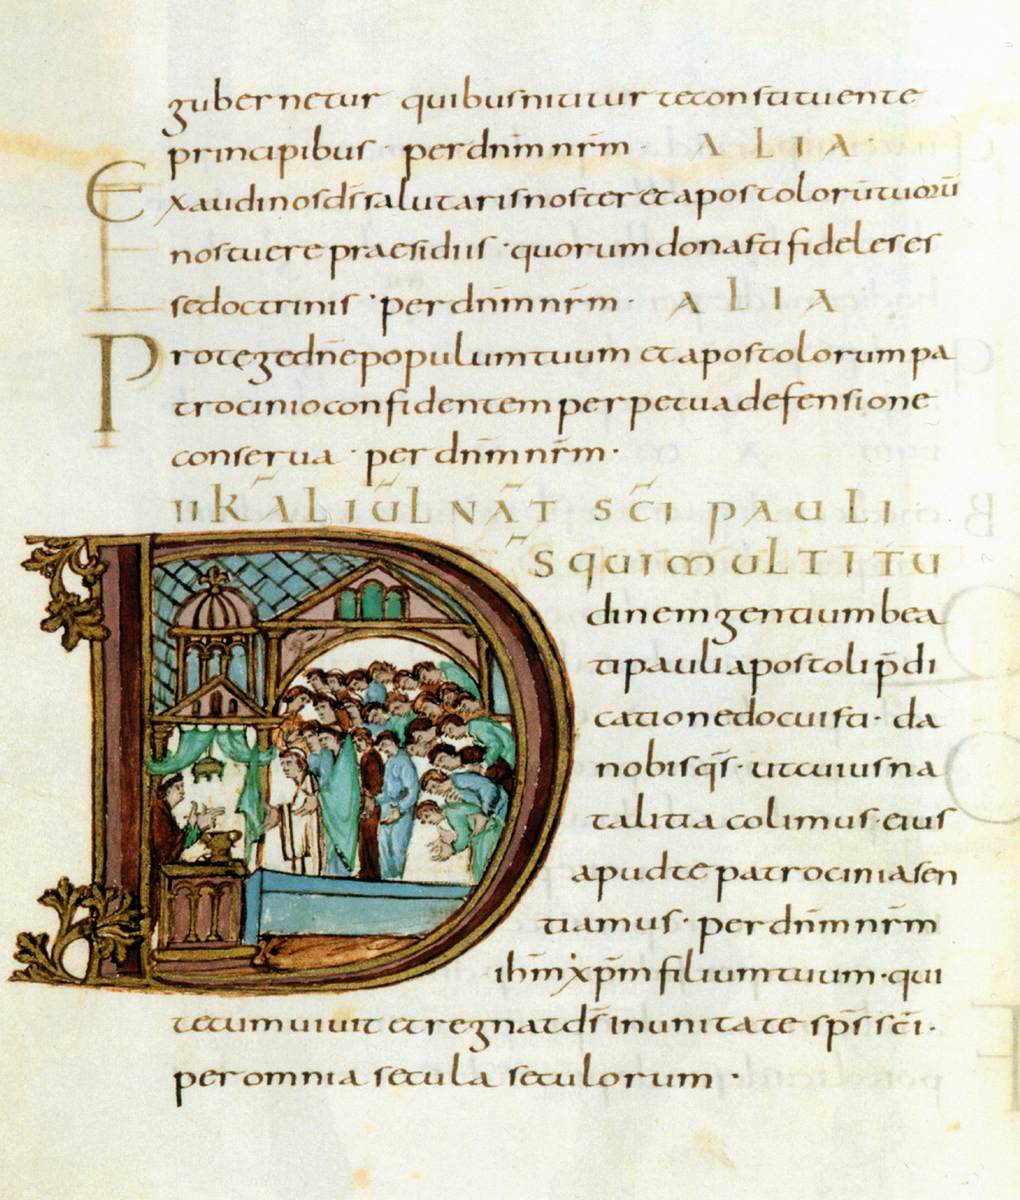 gubernetur quibusnititur teconstituente
principibus · perdnm̄nrm̄ · ALIA ·
Exaudinosds̄salutarisnoster etapostolorūtuorū
nostuere praesidiis · quorumdonasti fideles es
sedoctrinis · perdnm̄nrm̄ · ALIA
Protegednēpopulumtuum etapostolorumpa
trocinioconfidentem perpetuadefensione
conserua · per dnm̄nrm̄ ·
II KAL̄ IUL̄ NAT̄ SCĪ PAULI
D̄S QUIMULTITU
dinemgentiumbea
tipauliapostoli p̄di
cationedocuisti · da
nobisqs̄ · utcuiusna
talitia colimus · eius
apudte patrociniasen
tiamus · perdnm̄nrm̄
ihm̄xp̄m filiumtuum · qui
tecumuiuit etregnatds̄ inunitate sps̄ scī ·
peromnia secula seculorum ·